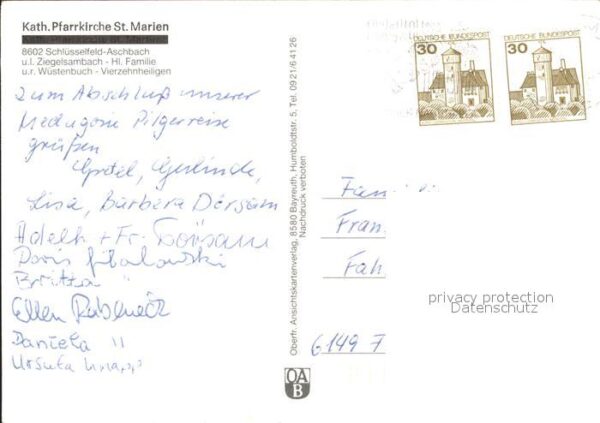 Kath. Pfarrkirche St. Marien
Kath. Pfarrkirche St. Marien
8602 Schlüsselfeld-Aschbach
u.l. Ziegelsambach - Hl. Familie
u.r. Wüstenbuch - Vierzehnheiligen
Zum Abschluß unserer
Medugorie Pilgerreise
grüßen
Gretel, Gerlinde,
Lisa, Barbara Dörsam
Adelh + Fr. Dörsam
Doris
Britta "
Ellen
Daniela "
Ursula
Oberfr. Ansichtskartenverlag, 8580 Bayreuth, Humboldtstr. 5, Tel. 09 21/6 41 26
Nachdruck verboten
OA
B
DEUTSCHE BUNDESPOST
30
DEUTSCHE BUNDESPOST
30
Fam
Fran
Fah
6149 F
privacy protection
Datenschutz